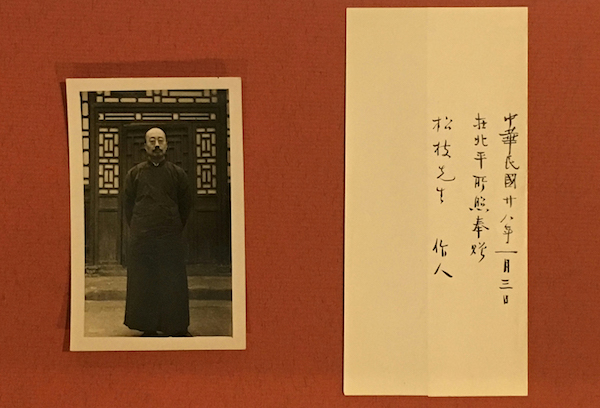 中華民國廿八年一月三日
在北平所照奉贈
松枝先生　作人